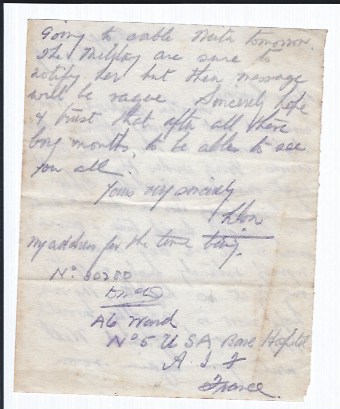 Going to cable tomorrow.
The Military are sure to
notify her but then message
will be vague Sincerely hope
& trust that after all these
long months, to be able to see
you all.
Yours very sincerely
My address for the time being.
No
A6 Ward
No 5 U S A Base Hospital
A. I. F
France.